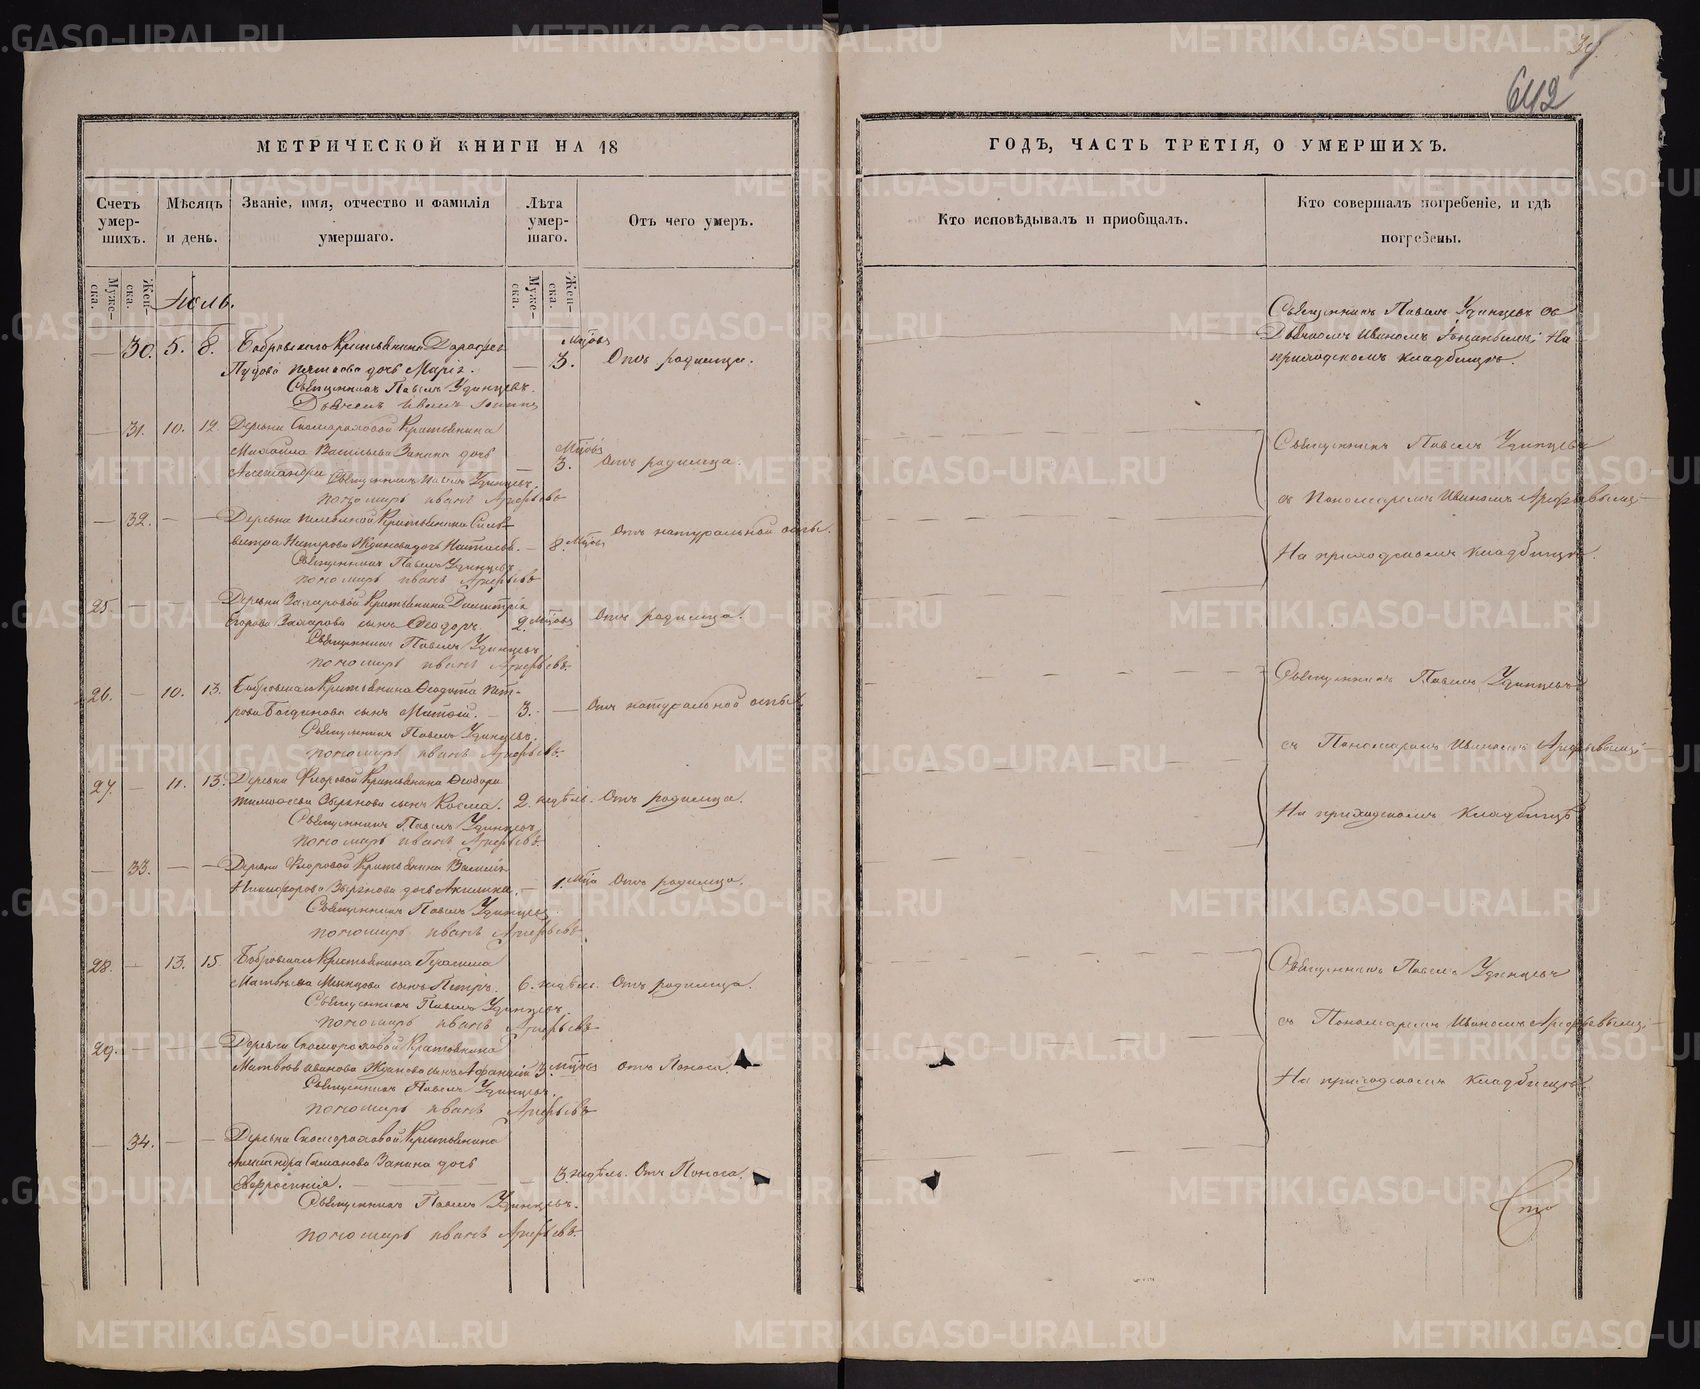 642
МЕТРИЧЕСКОЙ КНИГИ НА 18
ГОДЪ, ЧАСТЬ ТРЕТІЯ, О УМЕРШИХЪ.
Счетъ умер-шихъ.
Мѣсяцъ и день.
Званіе, имя, отчество и фамилія умершаго.
Лѣта умер-шаго.
Отъ чего умеръ.
Кто исповѣдывалъ и приобщалъ.
Кто совершалъ погребеніе, и гдѣ погребены.
Муже-ска.
Жен-ска.
Муже-ска.
Жен-ска.
Священникъ Павелъ Удинцевъ съ
Іюль.
Дьячкомъ Иваномъ На
30. 5. 8. Бобровскаго Крестьянина
Мцовъ
приходскомъ кладбищѣ.
Пудова дочь Марія. 3. Отъ родимца.
Священникъ Павелъ Удинцевъ.
Дьячекъ Иванъ
31. 10. 12. Деревни Скомороховой Крестьянина
Михайла Васильева Занина дочь
Мцовъ
Священникъ Павелъ Удинцевъ
Александра 3. Отъ родимца.
Священникъ Павелъ Удинцевъ.
пономарь иванъ Арефьевъ
съ Пономаремъ Иваномъ Арефьевымъ;
32. Деревни Крестьянина Силь-
вестра Нестерова Жданова дочь Наталья. 8. Мцовъ Отъ натуральной оспы.
На приходскомъ кладбищѣ.
Священникъ Павелъ Удинцевъ
пономарь иванъ Арефьевъ
25. Деревни Захаровой Крестьянина Димитрія
Захарова сынъ Ѳеодоръ. 2. Мцовъ Отъ родимца.
Священникъ Павелъ Удинцевъ
пономарь иванъ Арефьевъ.
Священникъ Павелъ Удинцевъ
26. 10. 13. Бобровскаго Крестьянина Ѳеодота Пет-
рова Богданова сынъ 3. Отъ натуральной оспы.
Священникъ Павелъ Удинцевъ.
пономарь иванъ Арефьевъ.
съ Пономаремъ Иваномъ Арефьевымъ;
27. 11. 13. Деревни Фроровой Крестьянина Ѳеодора
Тимофеева Зырянова сынъ Косма. 2. недѣль. Отъ родимца.
На приходскомъ кладбищѣ
Священникъ Павелъ Удинцевъ
пономарь иванъ Арефьевъ.
33. Деревни Фроровой Крестьянина Василія
Никифорова Зырянова дочь Акилина. 1. Мца Отъ родимца.
Священникъ Павелъ Удинцевъ
пономарь иванъ Арефьевъ
28. 13. 15. Бобровскаго Крестьянина Герасима
Священникъ Павелъ Удинцевъ
Матвѣева сынъ Петръ. 6. недѣль. Отъ родимца.
Священникъ Павелъ Удинцевъ.
пономарь иванъ Арефьевъ
съ Пономаремъ Иваномъ Арефьевымъ;
29. Деревни Скомороховой Крестьянина
Иванова Жданова сынъ Афанасій 3. Мцовъ Отъ Поноса.
На приходскомъ кладбищѣ.
Священникъ Павелъ Удинцевъ.
пономарь иванъ Арефьевъ
34. Деревни Скомороховой Крестьянина
Александра Симонова Занина дочь
3. недѣль. Отъ Поноса.
Священникъ Павелъ Удинцевъ.
пономарь иванъ Арефьевъ.
METRIKI.GASO-URAL.RU